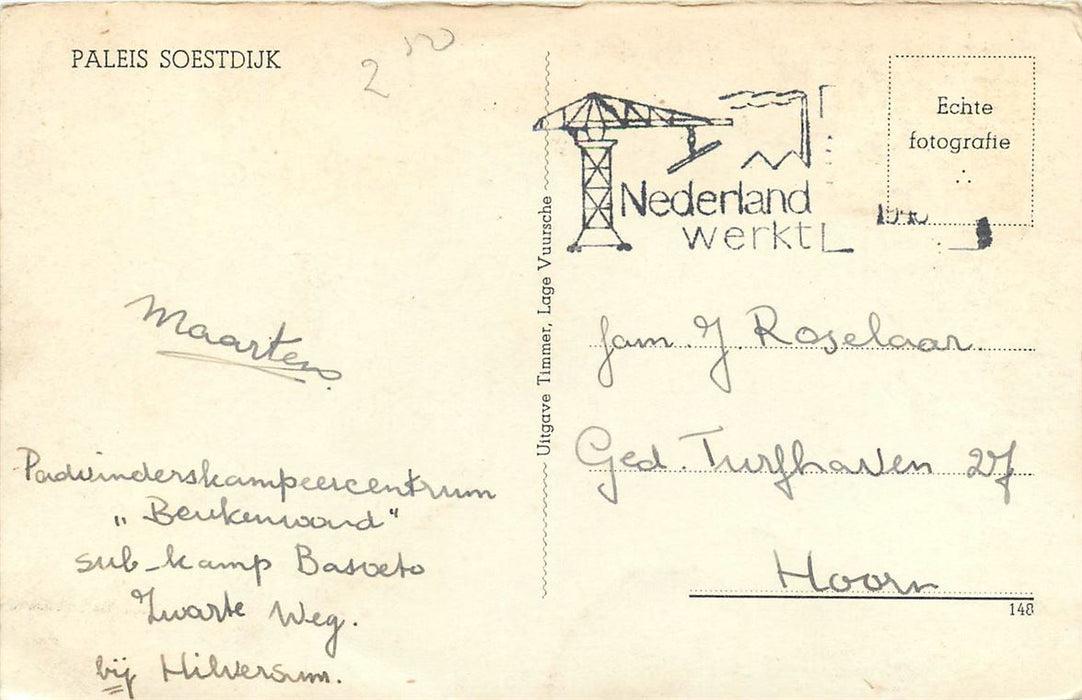 PALEIS SOESTDIJK
2 50
Maarten.
Padvinderskampeercentrum
"Beukenwoud"
sub-kamp Basoeto
Zwarte Weg.
bij Hilversum.
Uitgave Timmer, Lage Vuursche
Nederland
werkt
Echte
fotografie
fam. J. Roselaar.
Ged. Turfhaven 27
Hoorn
148